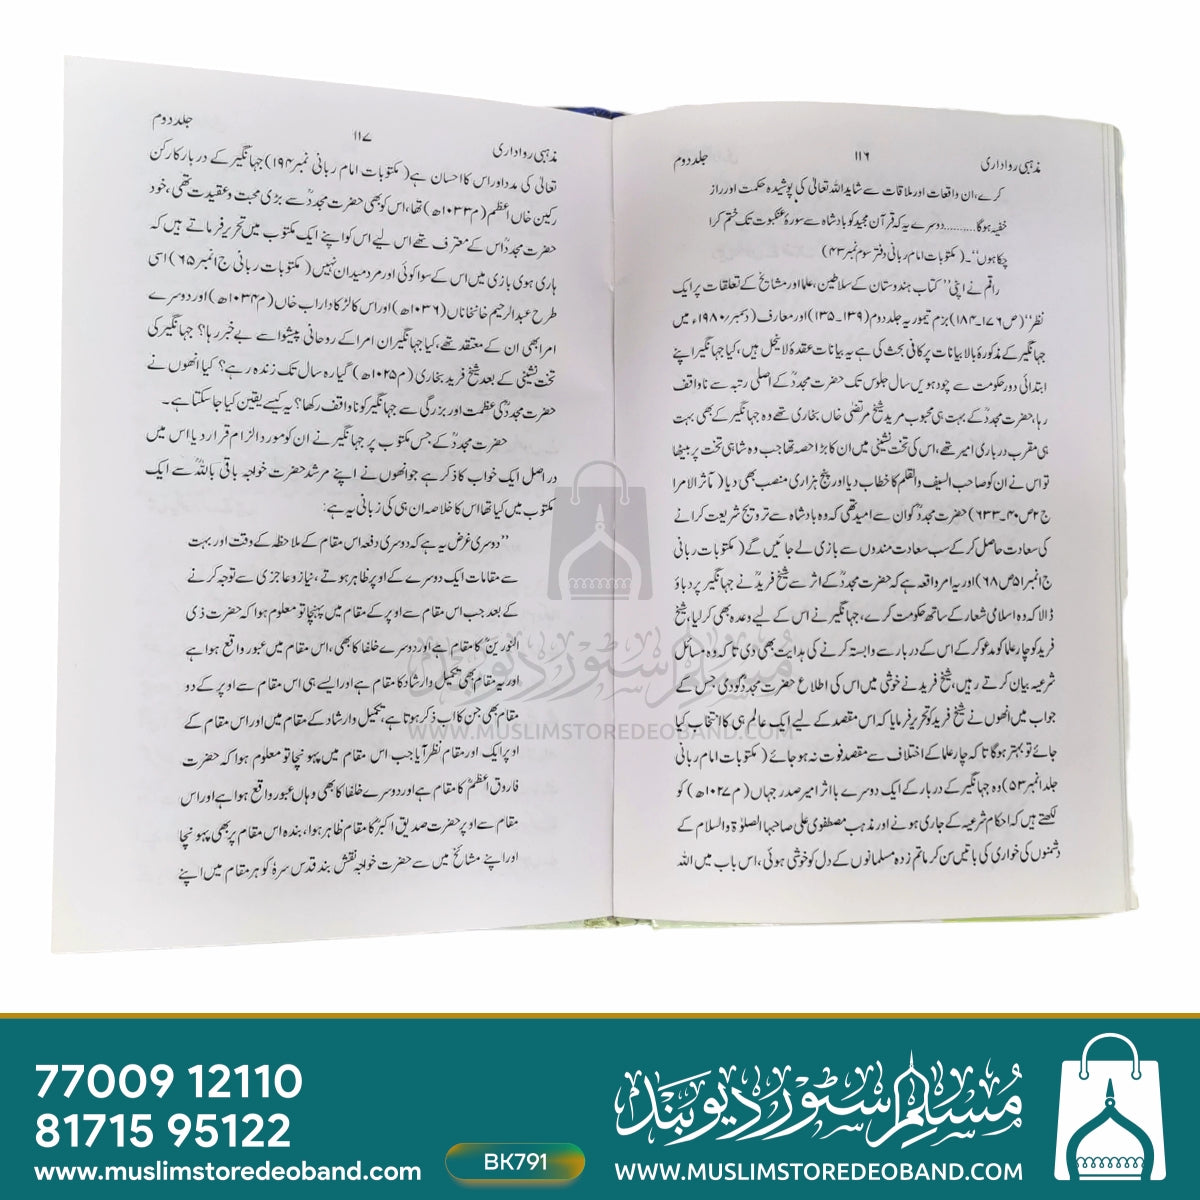 مذہبی رواداری ۱۱۶ جلد دوم
کرے، ان واقعات اور ملاقات سے شاید اللہ تعالیٰ کی پوشیدہ حکمت اور راز
خفیہ ہوگا..........دوسرے یہ کہ قرآن مجید کو بادشاہ سے سورۂ عنکبوت تک ختم کرا
چکا ہوں‘‘۔ (مکتوبات امام ربانی دفتر سوم نمبر ۴۳)
راقم نے اپنی’’ کتاب ہندوستان کے سلاطین، علما اور مشائخ کے تعلقات پر ایک
نظر‘‘(ص۱۷۶۔۱۸۴) بزم تیموریہ جلد دوم (۱۳۹۔۱۳۵) اور معارف (دسمبر/۱۹۸۰ء میں
جہانگیر کے مذکورۂ بالا بیانات پر کافی بحث کی ہے یہ بیانات عقدۂ لا ینحل ہیں، کیا جہانگیر اپنے
ابتدائی دور حکومت سے چودہویں سال جلوس تک حضرت مجددؒ کے اصلی رتبہ سے ناواقف
رہا، حضرت مجددؒ کے بہت ہی محبوب مرید شیخ مرتضیٰ خاں بخاری تھے وہ جہانگیر کے بھی بہت
ہی مقرب درباری امیر تھے، اس کی تخت نشینی میں ان کا بڑا حصہ تھا جب وہ شاہی تخت پر بیٹھا
تو اس نے ان کو صاحب السیف والقلم کا خطاب دیا اور پنج ہزاری منصب بھی دیا (مآثر الامرا
ج۲ص۴۰۔۶۳۳) حضرت مجددؒ کو ان سے امید تھی کہ وہ بادشاہ سے ترویج شریعت کرانے
کی سعادت حاصل کر کے سب سعادت مندوں سے بازی لے جائیں گے (مکتوبات ربانی
ج۱نمبر۵۱ص۶۸) اور یہ امر واقعہ ہے کہ حضرت مجددؒ کے اثر سے شیخ فریدؒ نے جہانگیر پر دباؤ
ڈالا کہ وہ اسلامی شعار کے ساتھ حکومت کرے، جہانگیر نے اس کے لیے وعدہ بھی کر لیا، شیخ
فرید کو چار علما کو مدعو کر کے اس کے دربار سے وابستہ کرنے کی ہدایت بھی دی تا کہ وہ مسائل
شرعیہ بیان کرتے رہیں، شیخ فرید نے خوشی میں اس کی اطلاع حضرت مجددؒ کو دی جس کے
جواب میں انھوں نے شیخ فرید کو تحریر فرمایا کہ اس مقصد کے لیے ایک عالم ہی کا انتخاب کیا
جائے تو بہتر ہوگا تا کہ چار علما کے اختلاف سے مقصد فوت نہ ہو جائے (مکتوبات امام ربانی
جلد۱نمبر۵۳) وہ جہانگیر کے دربار کے ایک دوسرے با اثر امیر صدر جہاں (م۱۰۲۷ھ) کو
لکھتے ہیں کہ احکام شرعیہ کے جاری ہونے اور مذہب مصطفوی علی صاحبہا الصلوٰۃ والسلام کے
دشمنوں کی خواری کی باتیں سن کر ماتم زدہ مسلمانوں کے دل کو خوشی ہوئی، اس باب میں اللہ
مذہبی رواداری ۱۱۷ جلد دوم
تعالیٰ کی مدد اور اس کا احسان ہے (مکتوبات امام ربانی نمبر۱۹۴) جہانگیر کے دربار کا رکن
رکین خاں اعظم (م۱۰۳۳ھ) تھا، اس کو بھی حضرت مجددؒ سے بڑی محبت و عقیدت تھی، خود
حضرت مجددؒ اس کے معترف تھے اس لیے اس کو اپنے ایک مکتوب میں تحریر فرماتے ہیں کہ
ہاری ہوی بازی میں اس کے سوا کوئی اور مرد میدان نہیں (مکتوبات ربانی ج۱نمبر۶۵) اسی
طرح عبد الرحیم خانخاناں (۱۰۳۶ھ) اور اس کا لڑکا داراب خاں (م۱۰۳۴ھ) اور دوسرے
امرا بھی ان کے معتقد تھے، کیا جہانگیر ان امرا کے روحانی پیشوا سے بے خبر رہا؟ جہانگیر کی
تخت نشینی کے بعد شیخ فرید بخاری (م۱۰۲۵ھ) گیارہ سال تک زندہ رہے؟ کیا انھوں نے
حضرت مجددؒ کی عظمت اور بزرگی سے جہانگیر کو ناواقف رکھا؟ یہ کیسے یقین کیا جا سکتا ہے۔
حضرت مجددؒ کے جس مکتوب پر جہانگیر نے ان کو مورد الزام قرار دیا اس میں
در اصل ایک خواب کا ذکر ہے جو انھوں نے اپنے مرشد حضرت خواجہ باقی باللہؒ سے ایک
مکتوب میں کیا تھا اس کا خلاصہ ان ہی کی زبانی یہ ہے:
’’دوسری عرض یہ ہے کہ دوسری دفعہ اس مقام کے ملاحظہ کے وقت اور بہت
سے مقامات ایک دوسرے کے اوپر ظاہر ہوتے، نیاز و عاجزی سے توجہ کرنے
کے بعد جب اس مقام سے اوپر کے مقام میں پہنچا تو معلوم ہوا کہ حضرت ذی
النورینؓ کا مقام ہے اور دوسرے خلفا کا بھی، اس مقام میں عبور واقع ہوا ہے
اور یہ مقام بھی تکمیل و ارشاد کا مقام ہے اور ایسے ہی اس مقام سے اوپر کے دو
مقام بھی جن کا اب ذکر ہوتا ہے، تکمیل و ارشاد کے مقام میں اور اس مقام کے
اوپر ایک اور مقام نظر آیا جب اس مقام میں پہونچا تو معلوم ہوا کہ حضرت
فاروق اعظمؓ کا مقام ہے اور دوسرے خلفا کا بھی وہاں عبور واقع ہوا ہے اور اس
مقام سے اوپر حضرت صدیق اکبرؓ کا مقام ظاہر ہوا، بندہ اس مقام پر بھی پہونچا
اور اپنے مشائخ میں سے حضرت خواجہ نقش بند قدس سرہٗ کو ہر مقام میں اپنے
مسلم سٹور دیوبند
WWW.MUSLIMSTOREDEOBAND.COM
77009 12110
81715 95122
www.muslimstoredeoband.com
BK791
مسلم سٹور دیوبند
WWW.MUSLIMSTOREDEOBAND.COM